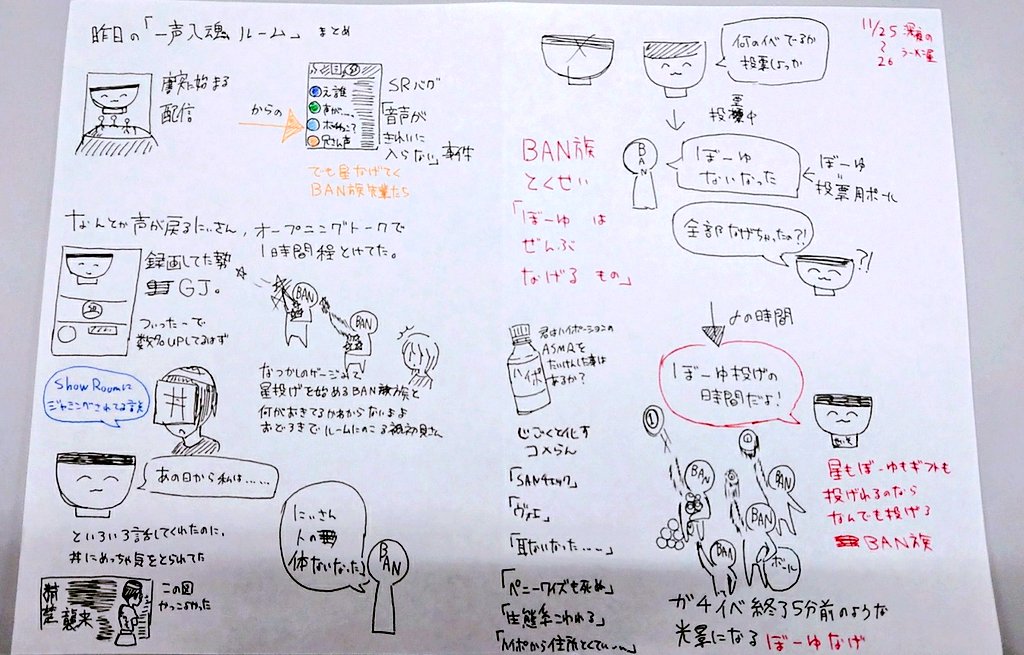 昨日の「一声入魂 ルーム」 まとめ
唐突に始まる
配信
からの
え誰
声が…、
SRバグ
「音声が
きれいに
入らない」事件
でも星なげてく
BAN族先輩たち
なんとか声が戻るにぃさん，オープニングトークで
1時間程とけてた。
録画してた勢
GJ。
ついったーで
数%UPしてるはず
SR
BAN
BAN
なつかしのゲージみて
星投げを始めるBAN族族と
何がおきてるかわからないまま
おどろきでルームにのこる初見さん
Show Roomに
ジャミングされてる説
井
あの日から私は……
といろいろ話してくれたのに，
丼にめっちゃ気をとられてた
襲来
この図
やっこよかった
にぃさん
人の
体ないなった
BAN
11/25 深夜の
〜
26 ラーメン屋
何のイベでるか
投票しよっか
投票中
BAN族
とくせい
「ぼーゆ は
ぜんぶ
なげる もの」
BAN
ぼーゆ
ないなった
ぼーゆ
=
投票用ボール
全部なげちゃったの?!
?!
〆の時間
ぼーゆ投げの
時間だよ!
君はハイポーションの
ASMRを
たいけんした事は
あるか?
ハイポ
じごくと化す
コメらん
「SANチェック」
「ヴォエ」
「耳ないなった……」
「ペニーワイズも死ぬ」
「生態系こわれる」
「ハイポから住所とくてい…」
BAN
BAN
BAN
BAN
ボール
星もぼーゆもギフトも
投げれるのなら
なんでも投げる
BAN族
ガチイベ終了5分前のような
光景になる ぼーゆなげ